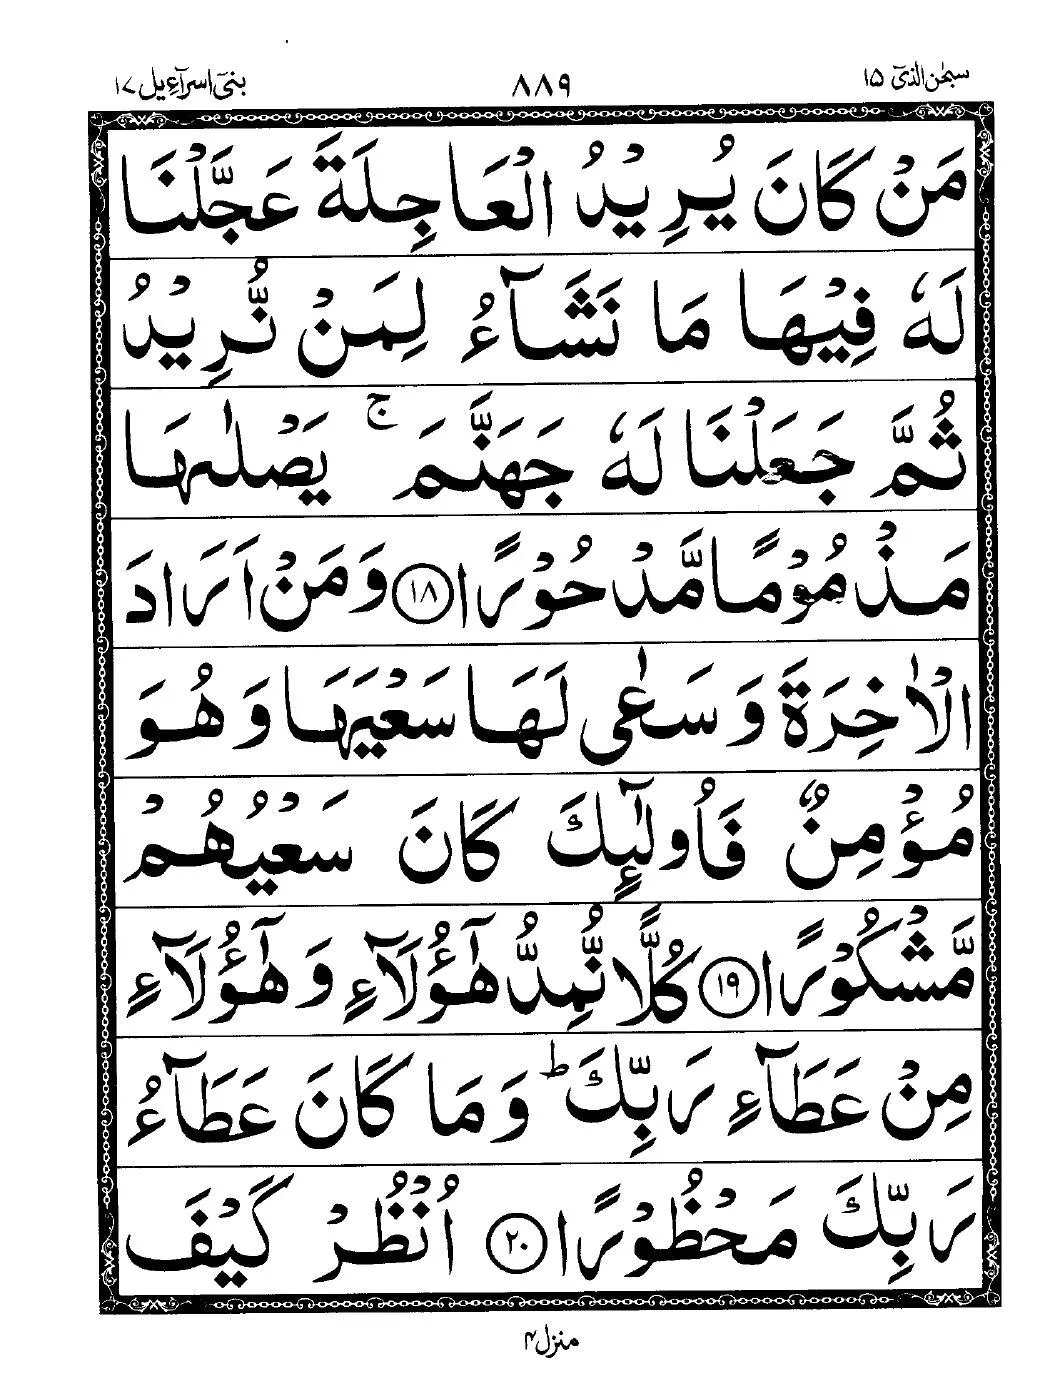 سبحٰن الذیۤ ۱۵
۸۸۹
بنیۤ اسرآءیل ۱۷
مَنْ كَانَ يُرِيْدُ الْعَاجِلَةَ عَجَّلْنَا
لَهٗ فِيْهَا مَا نَشَآءُ لِمَنْ نُّرِيْدُ
ثُمَّ جَعَلْنَا لَهٗ جَهَنَّمَ ۚ يَصْلٰىهَا
مَذْمُوْمًا مَّدْحُوْرًا ۝۱۸ وَمَنْ اَرَادَ
الْاٰخِرَةَ وَسَعٰى لَهَا سَعْيَهَا وَهُوَ
مُؤْمِنٌ فَاُولٰٓئِكَ كَانَ سَعْيُهُمْ
مَّشْكُوْرًا ۝۱۹ كُلًّا نُّمِدُّ هٰٓؤُلَآءِ وَهٰٓؤُلَآءِ
مِنْ عَطَآءِ رَبِّكَ ؕ وَمَا كَانَ عَطَآءُ
رَبِّكَ مَحْظُوْرًا ۝۲۰ اُنْظُرْ كَيْفَ
منزل ۴